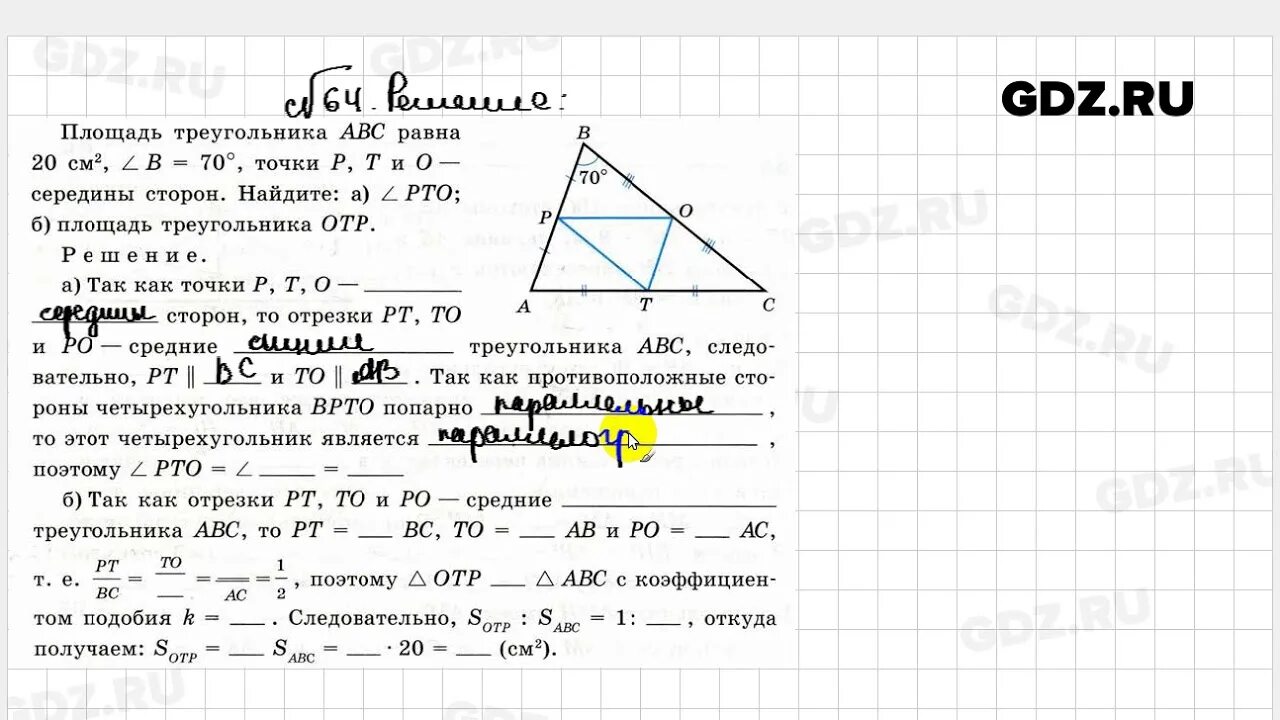 №64. Решение:
GDZ.RU
Площадь треугольника ABC равна
20 см², ∠ B = 70°, точки P, T и O —
середины сторон. Найдите: а) ∠ PTO;
б) площадь треугольника OTP.
Решение.
а) Так как точки P, T, O — ______
середины сторон, то отрезки PT, TO
и PO — средние линии треугольника ABC, следо-
вательно, PT ∥ BC и TO ∥ AB. Так как противоположные сто-
роны четырехугольника BPTO попарно параллельные,
то этот четырехугольник является параллелогр,
поэтому ∠ PTO = ∠ ____ = ____
б) Так как отрезки PT, TO и PO — средние ______
треугольника ABC, то PT = ___ BC, TO = ___ AB и PO = ___ AC,
т. е. PT/BC = TO/___ = ___/AC = 1/2, поэтому △ OTP ___ △ ABC с коэффициен-
том подобия k = ___. Следовательно, S_OTP : S_ABC = 1: ___, откуда
получаем: S_OTP = ___ S_ABC = ___ · 20 = ___ (см²).
B
70°
P
O
A
T
C
GDZ.RU
GDZ.RU
GDZ.RU
GDZ.RU
GDZ.RU
GDZ.RU
GDZ.RU